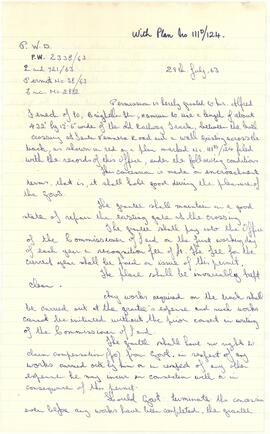 With Plan No 111D/124.
P. W. D.
P.W. 2338/63
Land 721/63
Permit No 38/63
Enc. No 2882
29th July, 63
Permission is hereby granted to Mr. Alfred
of 10, Brighton Str., Hamrun to use a length of about
432' by 12'-6" wide of the old Railway Track, between the
crossing at Santa Road and a wall existing across the
track, as shown in red on a plan marked No. 111D/124 filed
with the records of this Office, under the following conditions
This concession is made on encroachment
terms, that is, it shall hold good during the pleasure of
the Govt.
The grantee shall maintain in a good
state of repair the existing gate at the crossing
The grantee shall pay into the Office
of the Commissioner of Land on the first working day
of each year a recognition fee of The fee for the
current year shall be paid on issue of this permit.
The place shall be invariably kept
clean.
Any works required on the track shall
be carried out at the grantee's expense and such works
cannot be initiated without the prior consent in writing
of the Commissioner of Land.
The grantee shall have no right to
claim compensation from Govt. in respect of any
works carried out by him or in respect of any other
expense he may incur in connection with or in
consequence of this permit.
Should Govt. terminate the concession
even before any works have been completed, the grantee